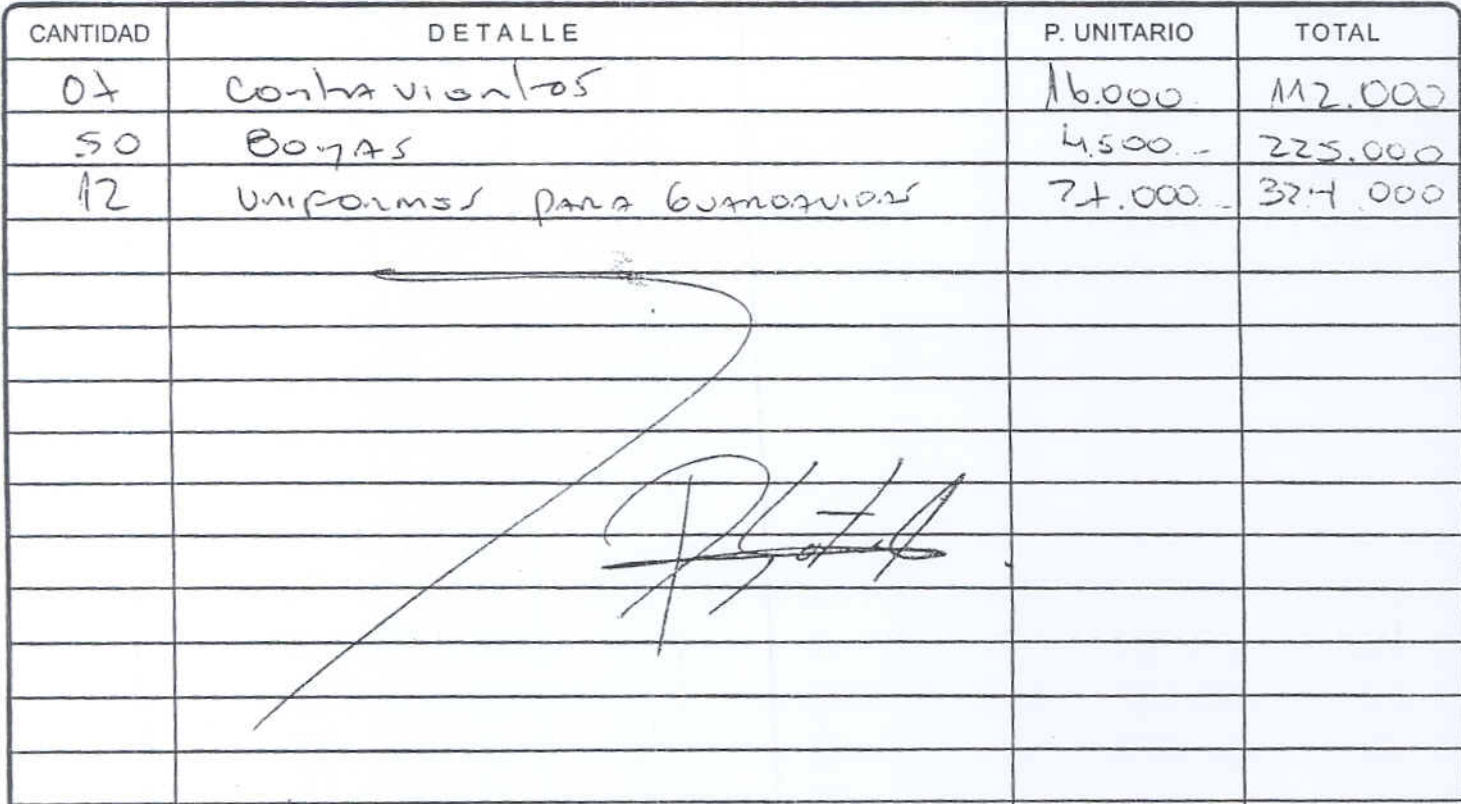 CANTIDAD DETALLE P. UNITARIO TOTAL
07 Contravientos 16.000 112.000
50 Boyas 4.500.- 225.000
12 Uniformes para Guardavidas 27.000.- 324.000